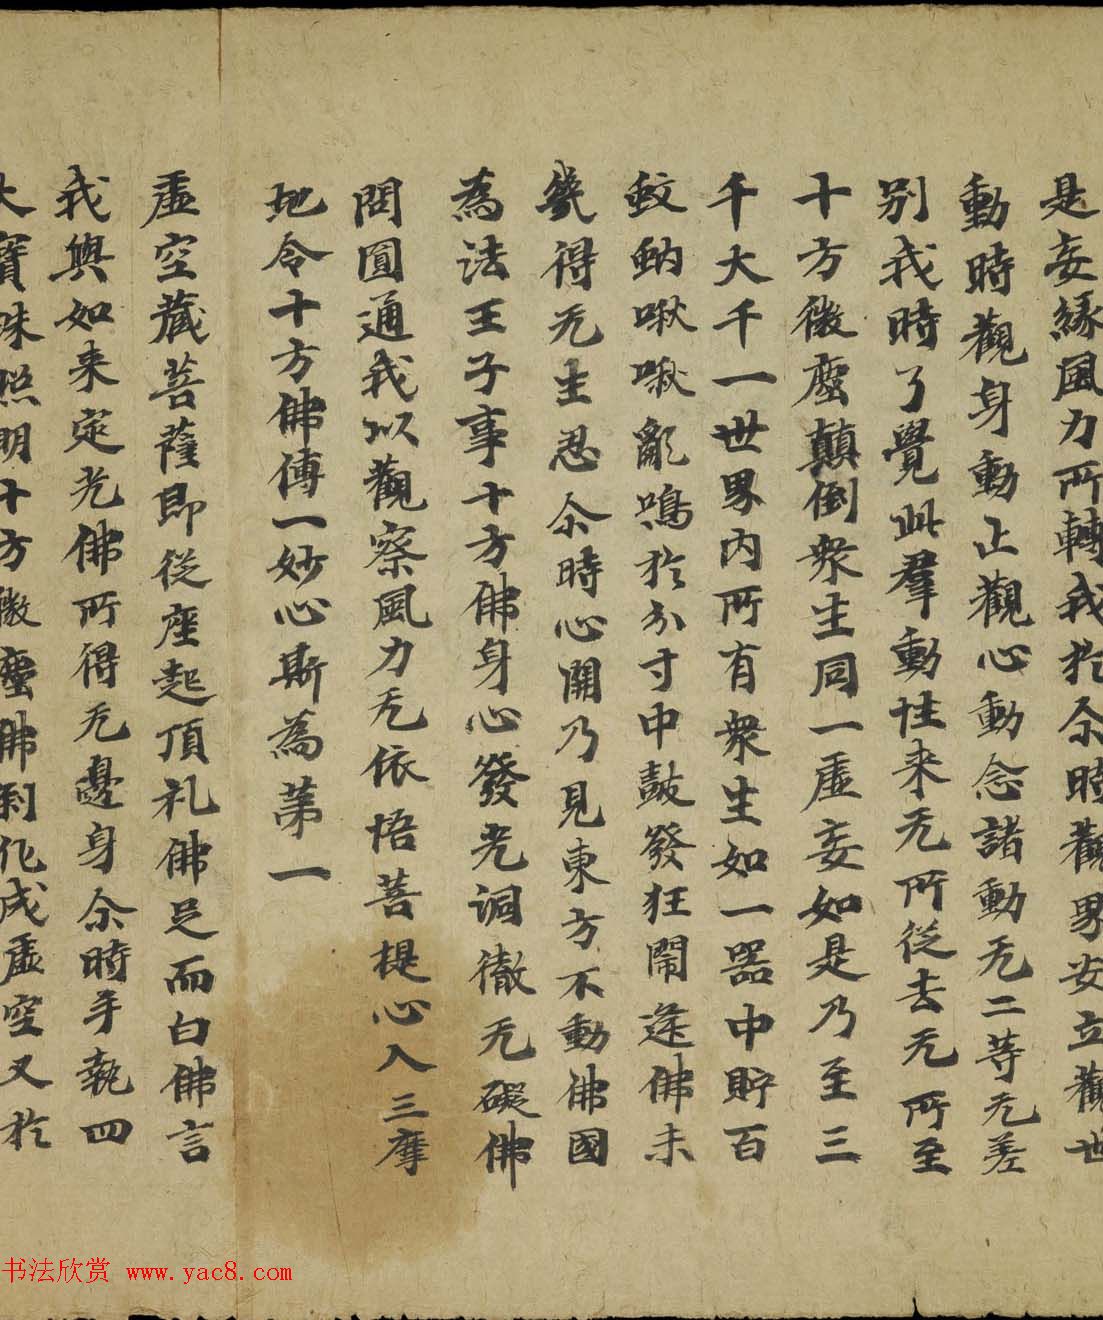 是妄緣風力所轉我於尒時觀界安立觀世
動時觀身動止觀心動念諸動无二等无差
別我時了覺此羣動性来无所從去无所至
十方微塵顛倒衆生同一虛妄如是乃至三
千大千一世界内所有衆生如一器中貯百
蚊蚋啾啾亂鳴於分寸中鼓發狂鬧逢佛未
幾得无生忍尒時心開乃見東方不動佛國
為法王子事十方佛身心發光洞徹无礙佛
問圓通我以觀察風力无依悟菩提心入三摩
地令十方佛傳一妙心斯為苐一
虛空藏菩薩即從座起頂礼佛足而白佛言
我與如来定光佛所得无邊身尒時手執四
大寳珠照明十方微塵佛刹化成虛空又於
书法欣赏 www.yac8.com